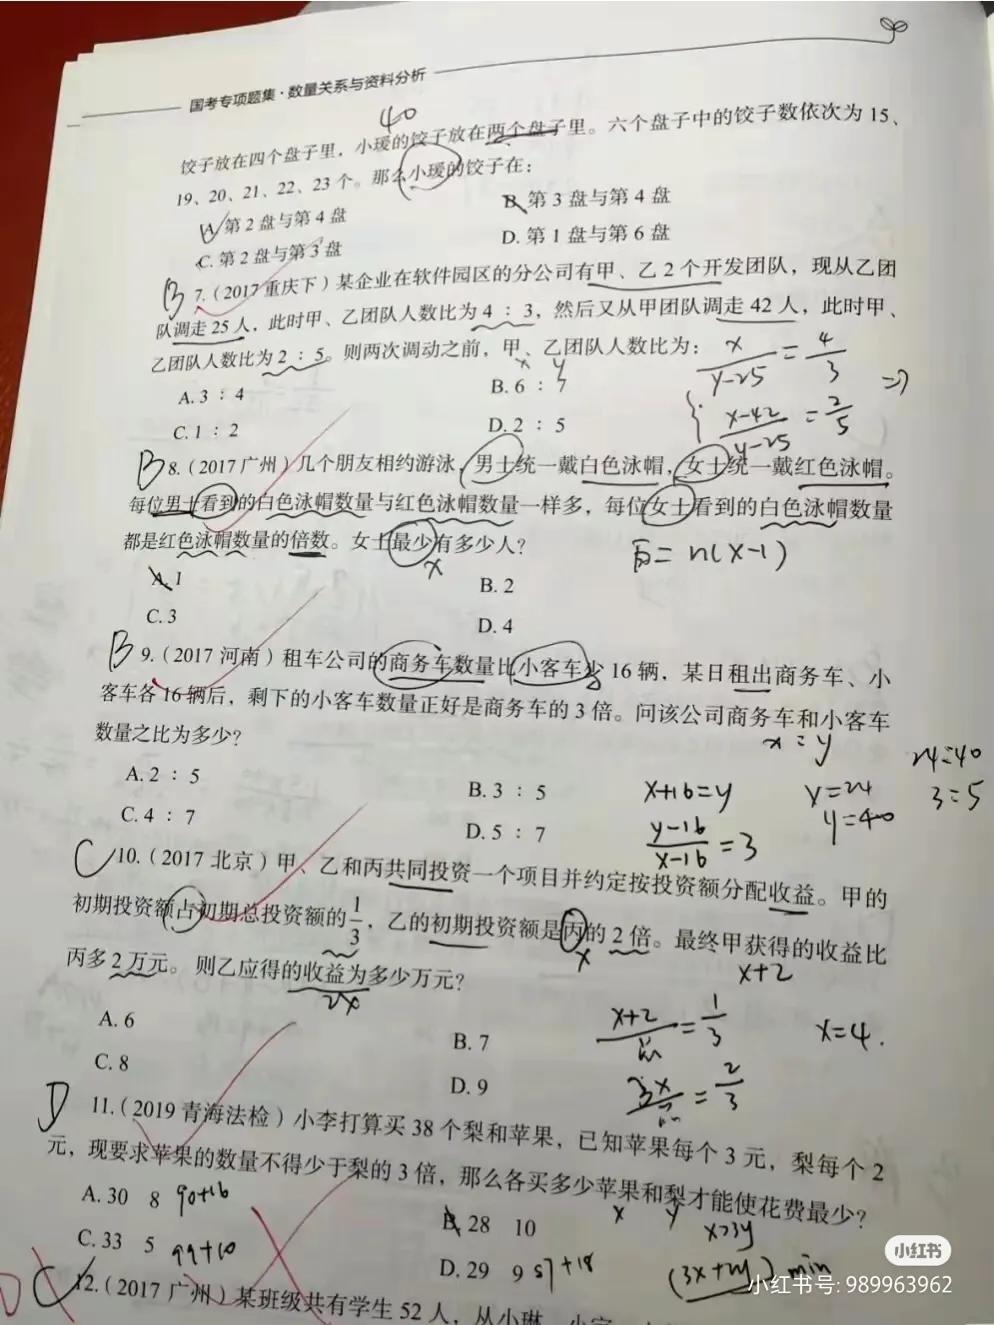 国考专项题集·数量关系与资料分析
40
饺子放在四个盘子里，小瑗的饺子放在两个盘子里。六个盘子中的饺子数依次为15、
19、20、21、22、23个。那么小瑗的饺子在：
A. 第2盘与第4盘
B. 第3盘与第4盘
C. 第2盘与第3盘
D. 第1盘与第6盘
B 7.（2017重庆下）某企业在软件园区的分公司有甲、乙2个开发团队，现从乙团
队调走25人，此时甲、乙团队人数比为4：3，然后又从甲团队调走42人，此时甲、
乙团队人数比为2：5。则两次调动之前，甲、乙团队人数比为：
x y
x/(y-25)=4/3 =>
A. 3：4
B. 6：7
(x-42)/(y-25)=2/5
C. 1：2
D. 2：5
B 8.（2017广州）几个朋友相约游泳，男士统一戴白色泳帽，女士统一戴红色泳帽。
每位男士看到的白色泳帽数量与红色泳帽数量一样多，每位女士看到的白色泳帽数量
都是红色泳帽数量的倍数。女士最少有多少人？
x
=n(x-1)
A. 1
B. 2
C. 3
D. 4
B 9.（2017河南）租车公司的商务车数量比小客车少16辆，某日租出商务车、小
客车各16辆后，剩下的小客车数量正好是商务车的3倍。问该公司商务车和小客车
数量之比为多少？
x=y
A. 2：5
B. 3：5
x+16=y
y=24
24=40
C. 4：7
D. 5：7
(y-16)/(x-16)=3
y=40
3=5
C 10.（2017北京）甲、乙和丙共同投资一个项目并约定按投资额分配收益。甲的
初期投资额占初期总投资额的1/3，乙的初期投资额是丙的2倍。最终甲获得的收益比
x
丙多2万元。则乙应得的收益为多少万元？
x+2
2x
A. 6
B. 7
x+2
=1/3
x=4.
C. 8
D. 9
3x
=2/3
D 11.（2019青海法检）小李打算买38个梨和苹果，已知苹果每个3元，梨每个2
元，现要求苹果的数量不得少于梨的3倍，那么各买多少苹果和梨才能使花费最少？
x y
A. 30 8 90+16
B. 28 10
x>3y
C. 33 5 99+10
D. 29 9 57+18
(3x+2y)min
C 12.（2017广州）某班级共有学生52人，从小琳、小
小红书
小红书号：989963962